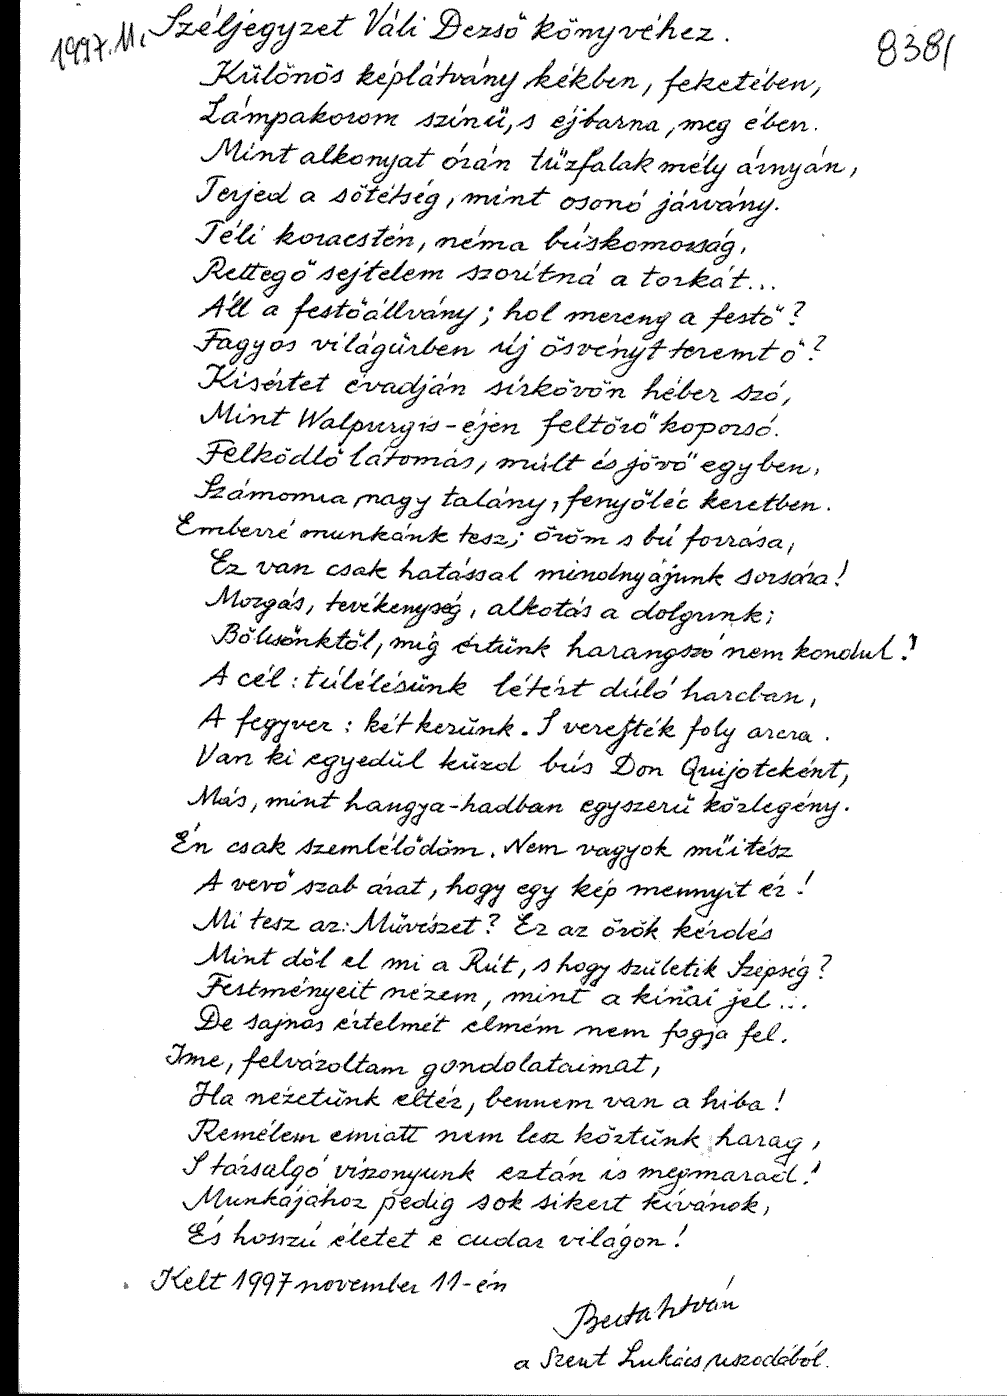 1997. 11.
8381
Széljegyzet Váli Dezső könyvéhez.
Különös képlátvány kékben, feketében,
Lámpakorom színű, s éjbarna, meg ében.
Mint alkonyat órán tűzfalak mély árnyán,
Terjed a sötétség, mint osonó járvány.
Téli koraestén, néma búskomorság,
Rettegő sejtelem szorítná a torkát...
Áll a festőállvány; hol mereng a festő?
Fagyos világűrben új ösvényt teremt ő?
Kisértet évadján sírkövön héber szó,
Mint Walpurgis-éjen feltörő koporsó.
Felködlő látomás, múlt és jövő egyben,
Számomra nagy talány, fenyőléc keretben.
Emberré munkánk tesz; öröm s bú forrása,
Ez van csak hatással mindnyájunk sorsára!
Mozgás, tevékenység, alkotás a dolgunk;
Bölcsőnktől, míg értünk harangszó nem kondul!
A cél: túlélésünk létért dúló harcban,
A fegyver: két kezünk. S verejték foly arcra.
Van ki egyedül küzd bús Don Quijoteként,
Más, mint hangya-hadban egyszerű közlegény.
Én csak szemlélődöm. Nem vagyok műítész
A vevő szab árat, hogy egy kép mennyit ér!
Mi tesz az: Művészet? Ez az örök kérdés
Mint dől el mi a Rút, s hogy születik Szépség?
Festményeit nézem, mint a kínai jel...
De sajnos értelmét elmém nem fogja fel.
Ime, felvázoltam gondolataimat,
Ha nézetünk eltér, bennem van a hiba!
Remélem emiatt nem lesz köztünk harag,
S társalgó viszonyunk eztán is megmarad!
Munkájához pedig sok sikert kívánok,
És hosszú életet e cudar világon!
Kelt 1997 november 11-én
István
a Szent Lukács uszodából.